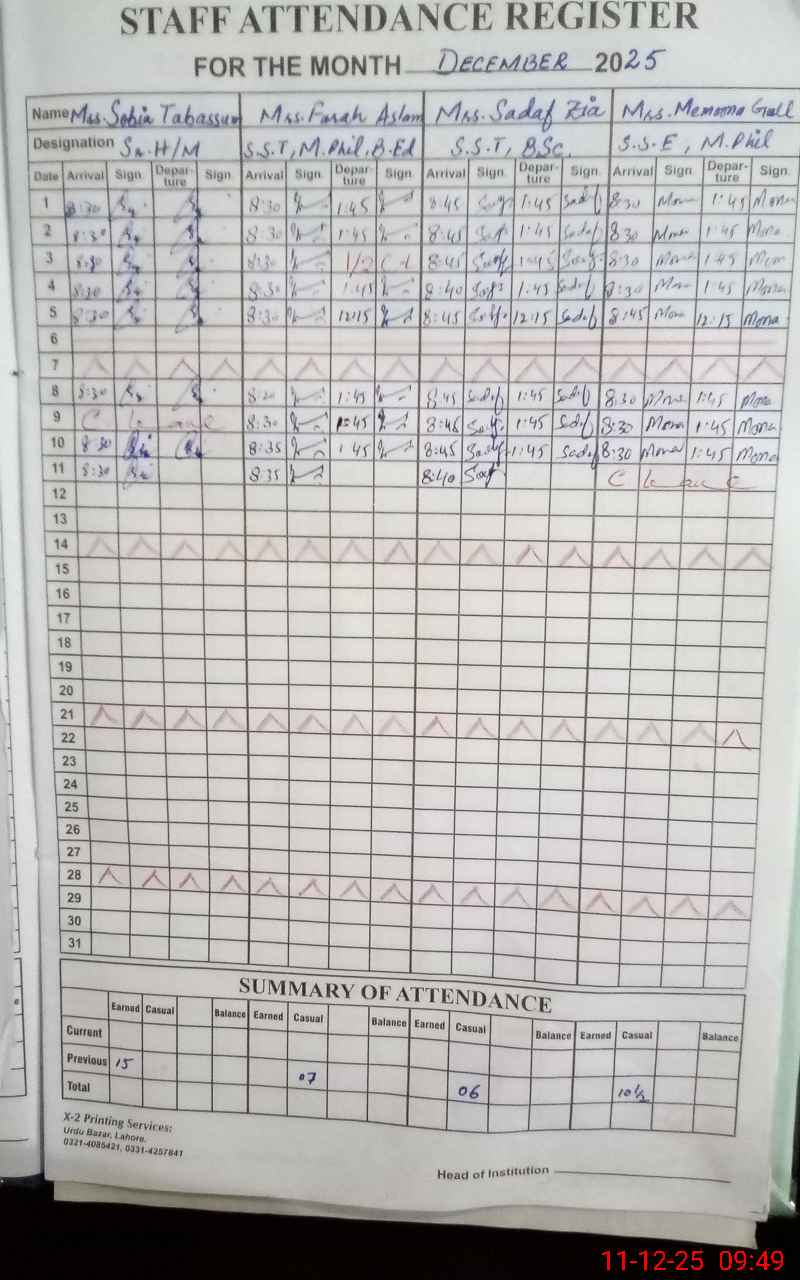 STAFF ATTENDANCE REGISTER
FOR THE MONTH DECEMBER 2025
Name Mrs. Sobia Tabassum Mrs. Farah Aslam Mrs. Sadaf Zia Mrs. Memoona Gull
Designation Sr. H/M S.S.T, M.Phil, B.Ed S.S.T, BSc. S.S.E, M.Phil
Date Arrival Sign. Depar-ture Sign. Arrival Sign. Depar-ture Sign. Arrival Sign. Depar-ture Sign. Arrival Sign. Depar-ture Sign.
1 8:30 8:30 1:45 8:45 1:45 Sadaf 8:30 Mona 1:45 Mona
2 8:30 8:30 1:45 8:45 1:45 Sadaf 8:30 Mona 1:45 Mona
3 8:30 8:30 1/2 C L 8:45 1:45 8:30 Mona 1:45 Mona
4 8:30 8:30 1:45 8:40 1:45 Sadaf 8:30 Mona 1:45 Mona
5 8:30 8:30 12:15 8:45 12:15 Sadaf 8:45 Mona 12:15 Mona
6
7
8 8:30 8:20 1:45 8:45 Sadaf 1:45 Sadaf 8:30 Mona 1:45 Mona
9 C leave 8:30 1:45 8:45 1:45 Sadaf 8:30 Mona 1:45 Mona
10 8:30 8:35 1:45 8:45 Sadaf 1:45 Sadaf 8:30 Mona 1:45 Mona
11 8:30 8:35 8:40 C leave
12
13
14
15
16
17
18
19
20
21
22
23
24
25
26
27
28
29
30
31
SUMMARY OF ATTENDANCE
Earned Casual Balance Earned Casual Balance Earned Casual Balance Earned Casual Balance
Current
Previous 15 07 06 10 1/2
Total
X-2 Printing Services:
Urdu Bazar, Lahore.
0321-4085421, 0331-4257841
Head of Institution
11-12-25 09:49